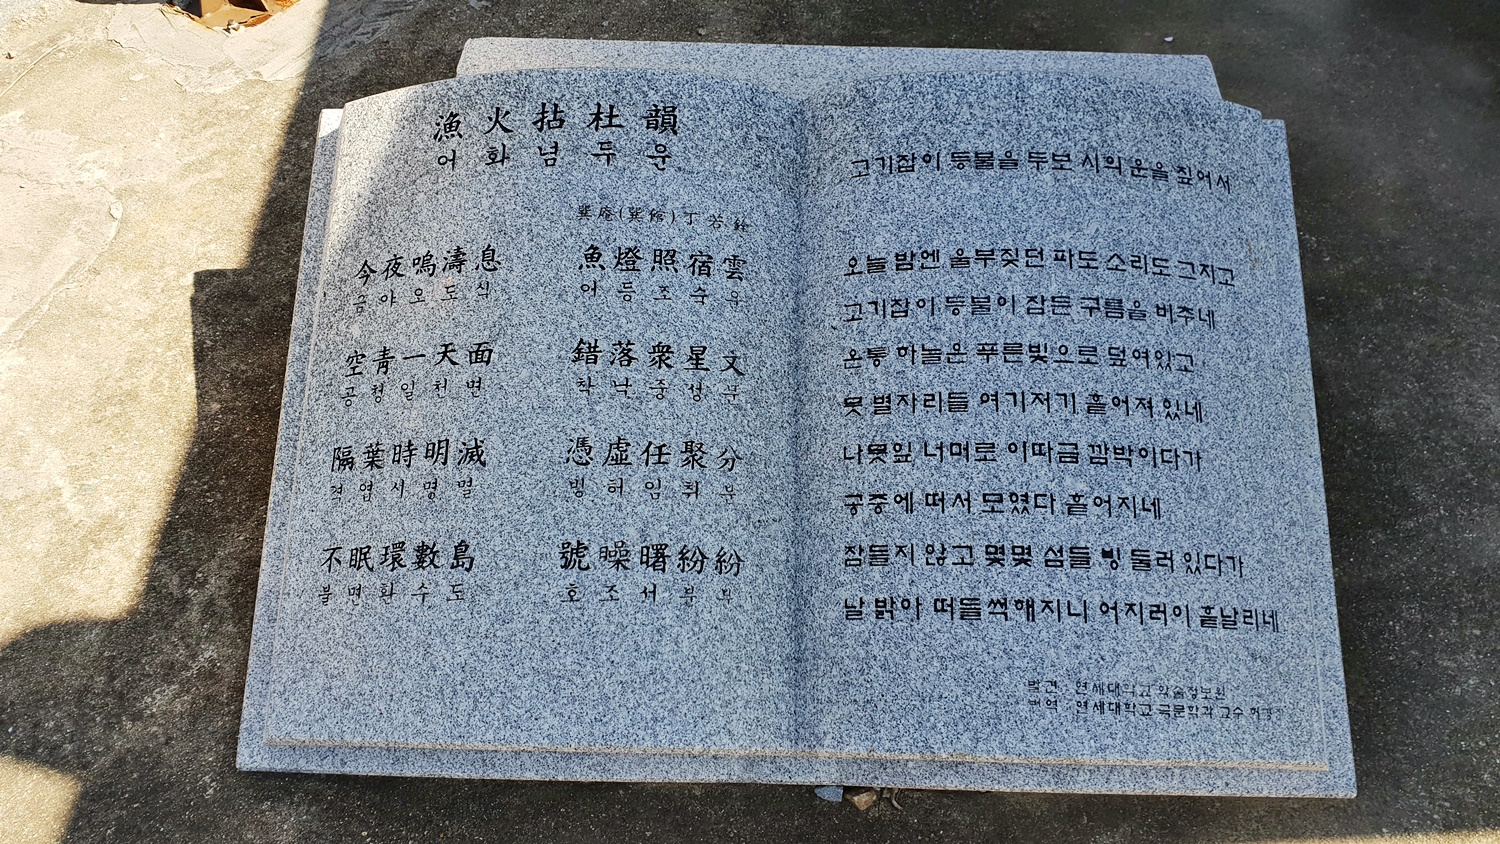 漁火拈杜韻
어화념두운
巽庵(巽館) 丁若銓
今夜嗚濤息 魚燈照宿雲
금야오도식 어등조숙우
空靑一天面 錯落衆星文
공청일천면 착낙중성부
隔葉時明滅 憑虛任聚分
격엽시명멸 빙허임취부
不眠環數島 號曙紛紛
불면환수도 호조서부부
고기잡이 등불을 두보 시의 운을 짚어서
오늘 밤엔 울부짖던 파도 소리도 그치고
고기잡이 등불이 잠든 구름을 비추네
온통 하늘은 푸른빛으로 덮여있고
뭇 별자리들 여기저기 흩어져 있네
나뭇잎 너머로 이따금 깜박이다가
공중에 떠서 모였다 흩어지네
잠들지 않고 몇몇 섬들 빙 둘러 있다가
날 밝아 떠들썩해지니 어지러이 흩날리네
발견 : 연세대학교 학술정보원
번역 : 연세대학교 국문학과 교수 허경